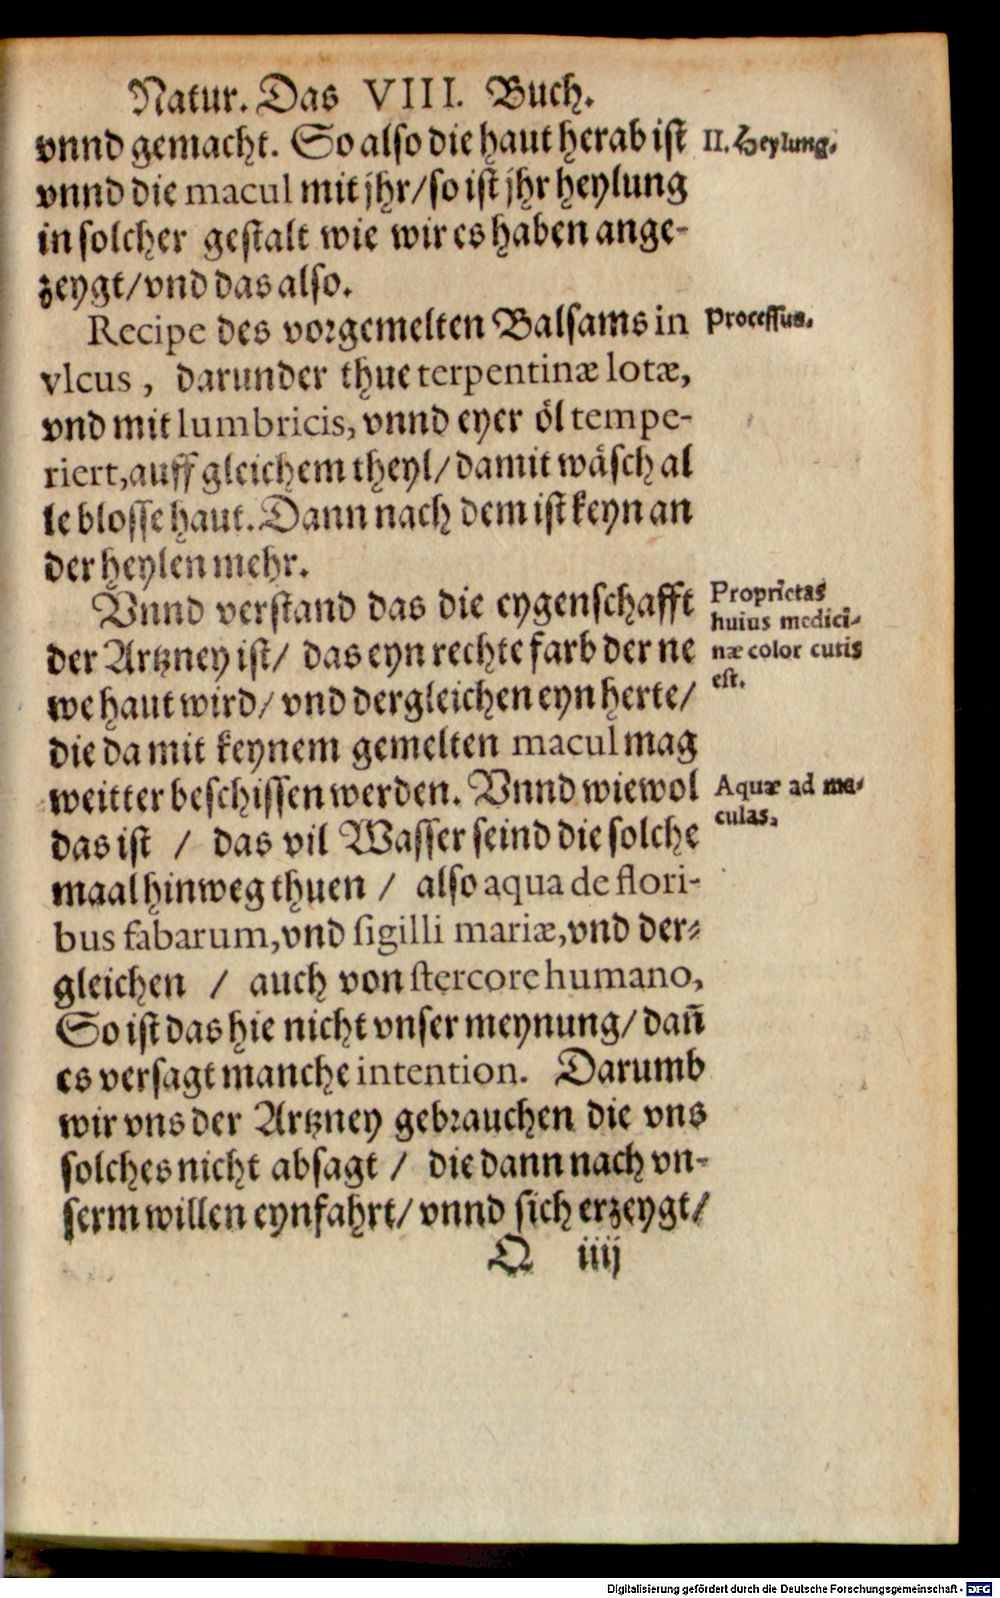 Natur. Das VIII. Buch.
vnnd gemacht. So also die haut herab ist
II. Heylung.
vnnd die macul mit jhr/so ist jhr heylung
in solcher gestalt wie wir es haben ange-
zeygt/vnd das also.
Recipe des vorgemelten Balsams in
Processus.
vlcus, darunder thue terpentinæ lotæ,
vnd mit lumbricis, vnnd eyer öl tempe-
riert, auff gleichem theyl/damit wäsch al
le blosse haut. Dann nach dem ist keyn an
der heylen mehr.
Vnnd verstand das die eygenschafft
der Artzney ist/ das eyn rechte farb der ne
we haut wird/ vnd dergleichen eyn herte/
Proprietas
huius medici-
næ color cutis
est.
die da mit keynem gemelten macul mag
weitter beschissen werden. Vnnd wiewol
das ist / das vil Wasser seind die solche
Aquæ ad ma-
culas.
maal hinweg thuen / also aqua de flori-
bus fabarum, vnd sigilli mariæ, vnd der-
gleichen / auch von stercore humano,
So ist das hie nicht vnser meynung/ dañ
es versagt manche intention. Darumb
wir vns der Artzney gebrauchen die vns
solches nicht absagt / die dann nach vn-
serm willen eynfahrt/ vnnd sich erzeygt/
Q iiij
Digitalisierung gefördert durch die Deutsche Forschungsgemeinschaft - DFG